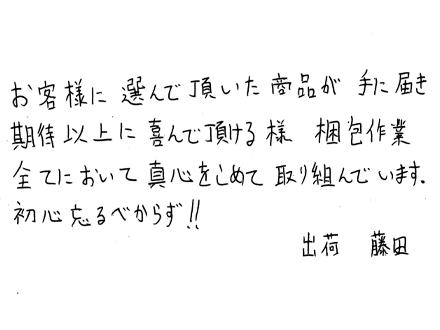 お客様に 選んで頂いた 商品が 手に届き
期待以上に 喜んで頂ける様 梱包作業
全てにおいて 真心をこめて 取り組んでいます.
初心忘るべからず!!
出荷 藤田